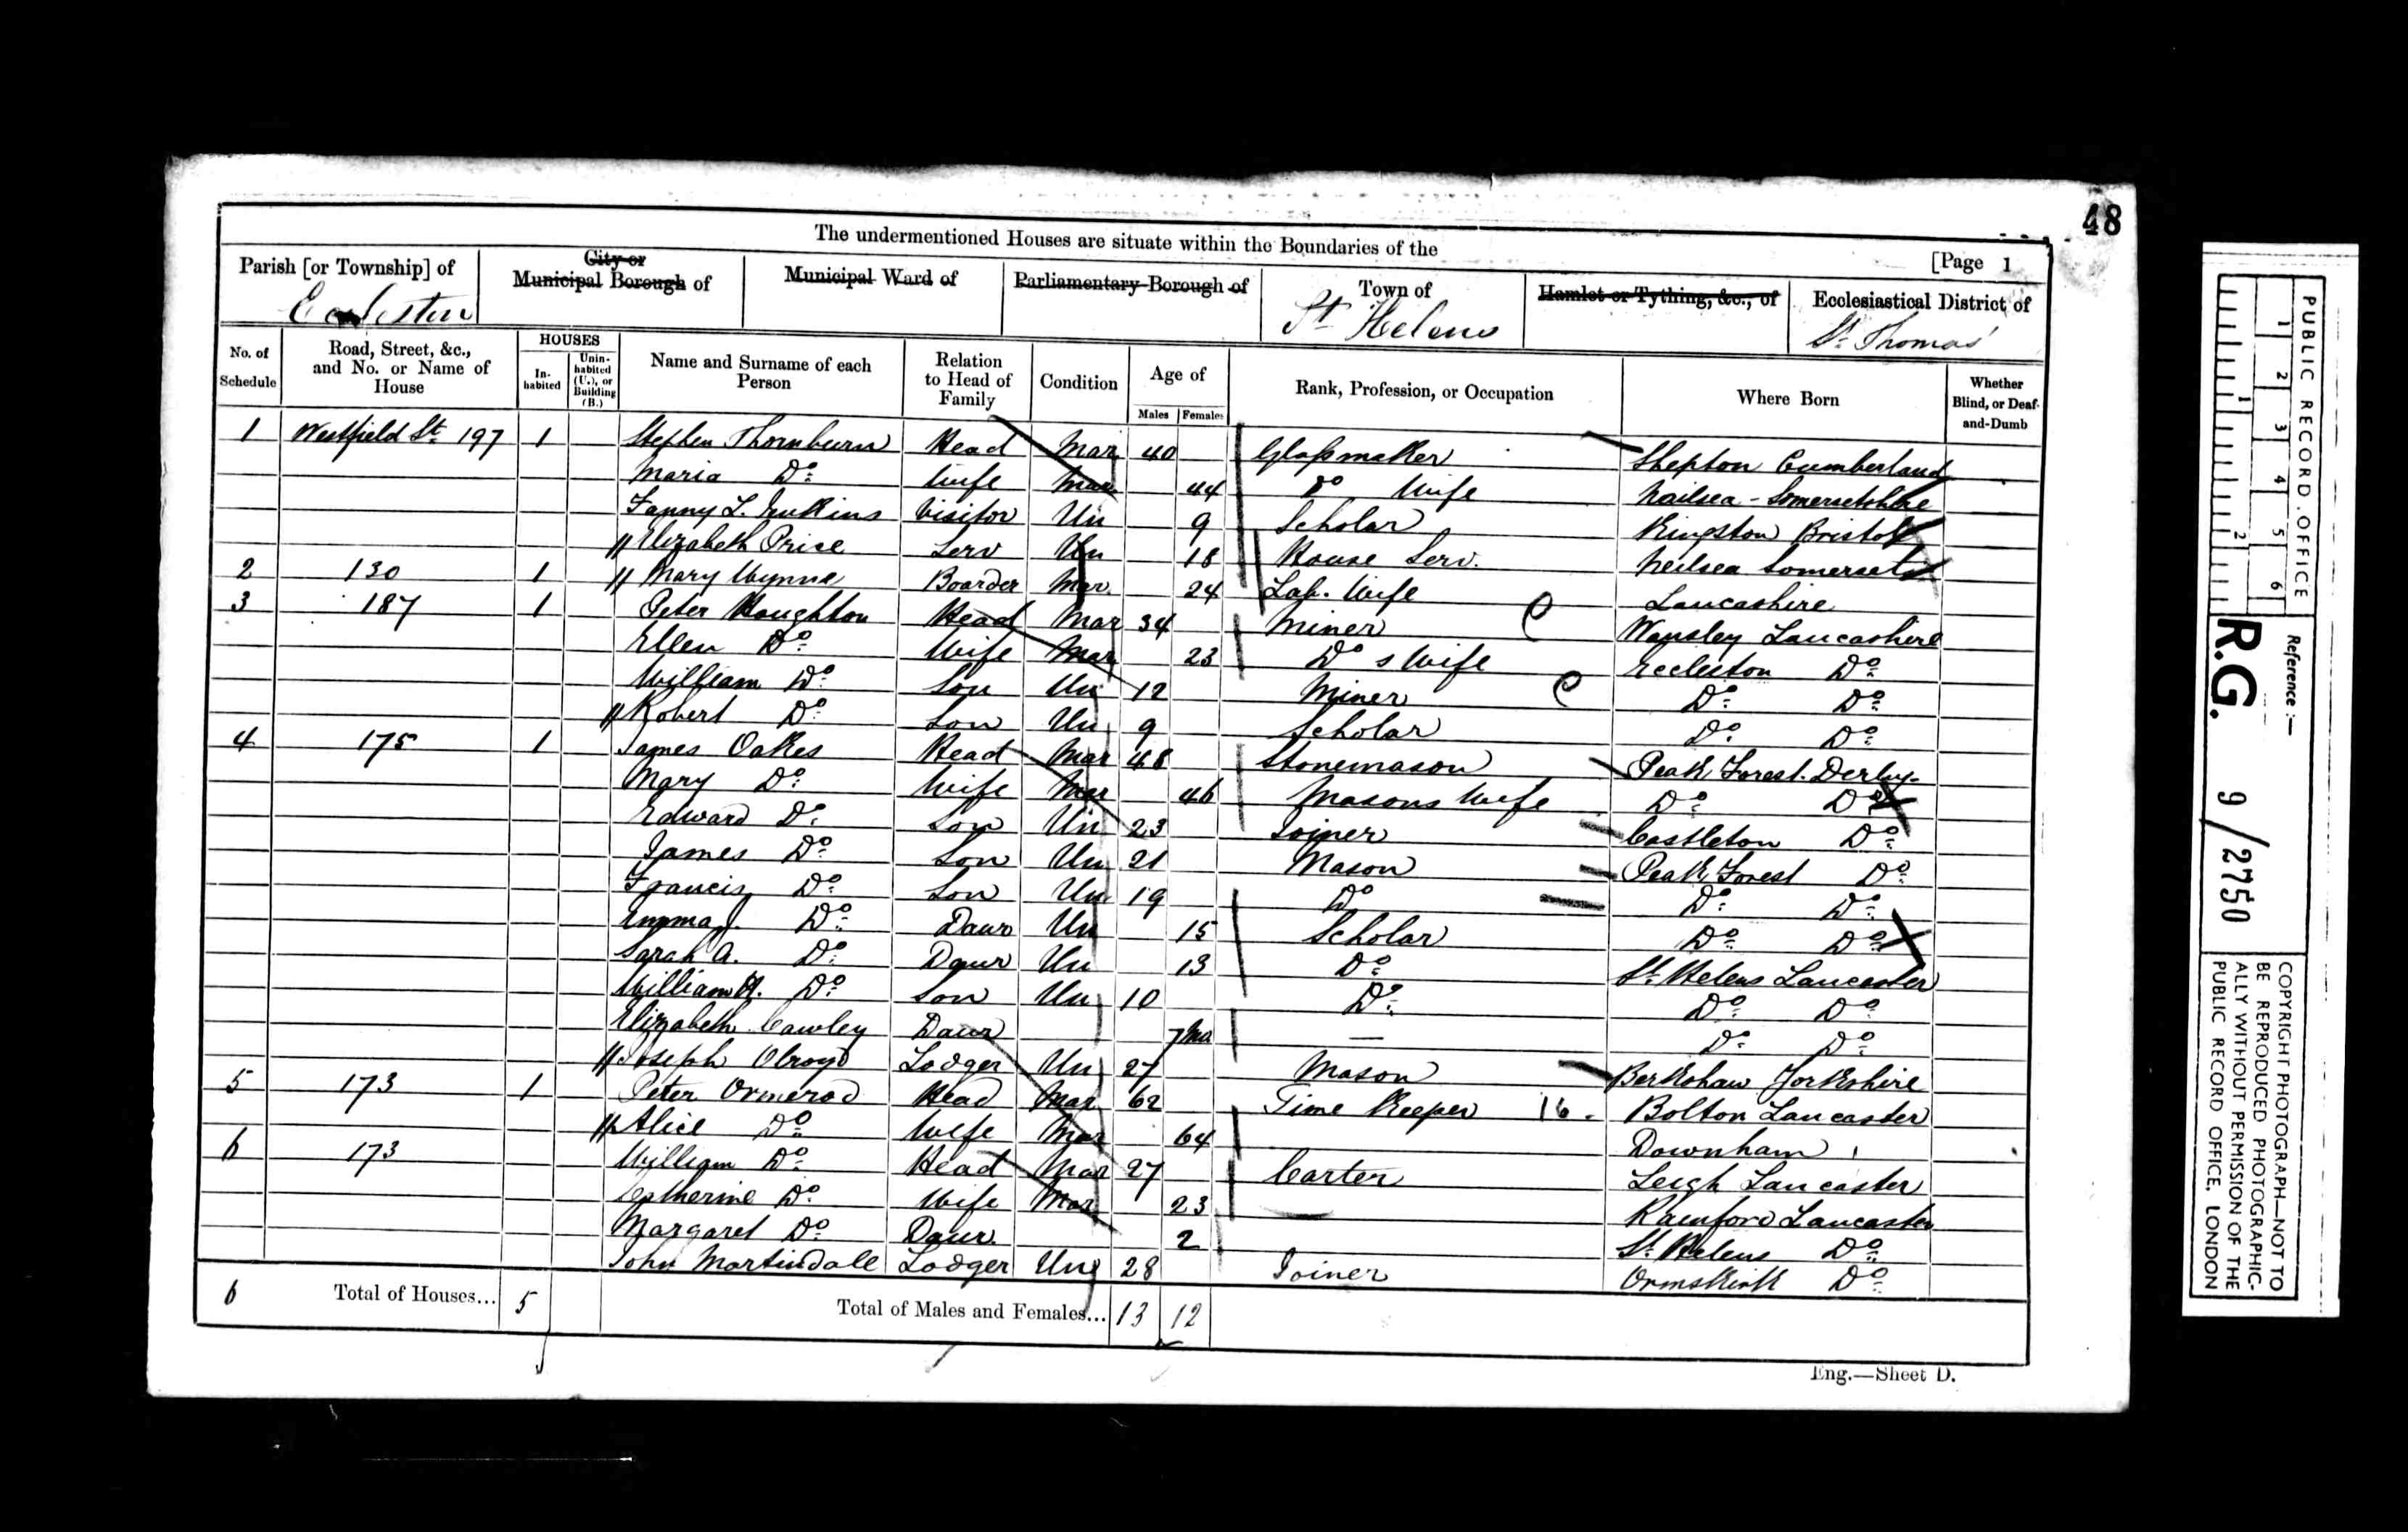 48
The undermentioned Houses are situate within the Boundaries of the
[Page 1
Parish [or Township] of
Eccleston
City or Municipal Borough of
Municipal Ward of
Parliamentary Borough of
Town of
St Helens
Hamlet or Tything, &c., of
Ecclesiastical District of
St. Thomas'
No. of Schedule
Road, Street, &c., and No. or Name of House
HOUSES
In-habited
Unin-habited (U.), or Building (B.)
Name and Surname of each Person
Relation to Head of Family
Condition
Age of
Males
Females
Rank, Profession, or Occupation
Where Born
Whether Blind, or Deaf-and-Dumb
1 Westfield St. 197 1 Stephen Thornburn Head Mar 40 Glassmaker Shepton Cumberland
Maria Do Wife Mar 44 Do Wife Nailsea - Somersetshire
Fanny L. Jenkins Visitor Un 9 Scholar Kingston Bristol
Elizabeth Price Serv Un 18 House Serv. Neilsea Somerset
2 130 1 Mary Wynne Boarder Mar. 24 Lab. Wife Lancashire
3 187 1 Peter Houghton Head Mar 34 Miner Wansley Lancashire
Ellen Do Wife Mar 23 Do s Wife Eccleston Do
William Do Son Un 12 Miner Do Do
Robert Do Son Un 9 Scholar Do Do
4 175 1 James Oakes Head Mar 48 Stonemason Peak Forest. Derby.
Mary Do Wife Mar 46 Masons Wife Do Do
Edward Do Son Un 23 Joiner Castleton Do
James Do Son Un 21 Mason Peak Forest Do
Francis Do Son Un 19 Do Do Do
Emma Do Daur Un 15 Scholar Do Do
Sarah A. Do Daur Un 13 Do St. Helens Lancaster
William H. Do Son Un 10 Do Do Do
Elizabeth Cawley Daur 7 Mo — Do Do
Joseph Olroyd Lodger Un 27 Mason Berkshaw Yorkshire
5 173 1 Peter Ormerod Head Mar 62 Time Keeper 16 Bolton Lancaster
Alice Do Wife Mar 64 Downham
6 173 William Do Head Mar 27 Carter Leigh Lancaster
Catherine Do Wife Mar 23 Rainford Lancaster
Margaret Do Daur. 2 St. Helens Do
John Martindale Lodger Un 28 Joiner Ormskirk Do
6 Total of Houses... 5 Total of Males and Females... 13 12
Eng.—Sheet D.
PUBLIC RECORD OFFICE
1 2 3 4 5 6
1 2
Reference :—
R.G. 9/2750
COPYRIGHT PHOTOGRAPH—NOT TO
BE REPRODUCED PHOTOGRAPHIC-
ALLY WITHOUT PERMISSION OF THE
PUBLIC RECORD OFFICE, LONDON